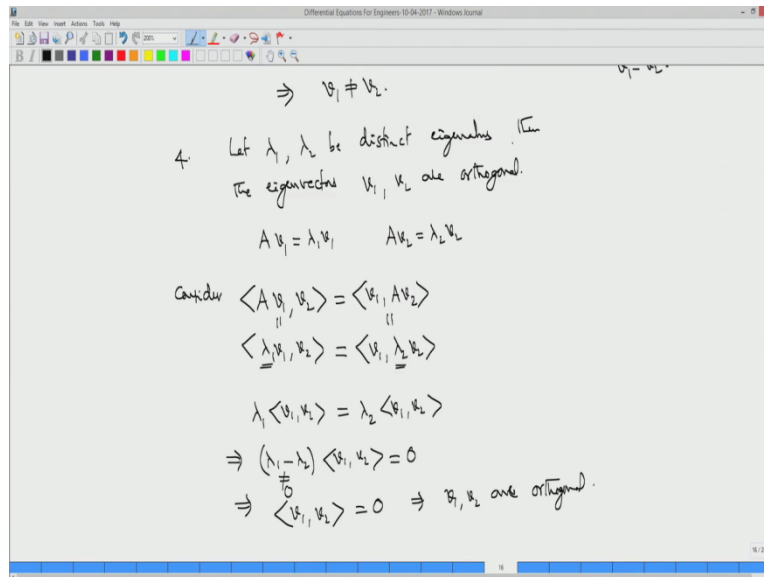 Differential Equations For Engineers-10-04-2017 - Windows Journal
File Edit View Insert Actions Tools Help
200%
B I
v₁ - v₂.
⇒ v₁ ≠ v₂.
4. Let λ₁, λ₂ be distinct eigenvalues, then
The eigenvectors v₁, v₂ are orthogonal.
A v₁ = λ₁v₁ A v₂ = λ₂ v₂
Consider <A v₁, v₂> = <v₁, A v₂>
<λ₁v₁, v₂> = <v₁, λ₂ v₂>
λ₁ <v₁, v₂> = λ₂ <v₁, v₂>
⇒ (λ₁ - λ₂) <v₁, v₂> = 0
≠
0
⇒ <v₁, v₂> = 0 ⇒ v₁, v₂ are orthogonal.
16